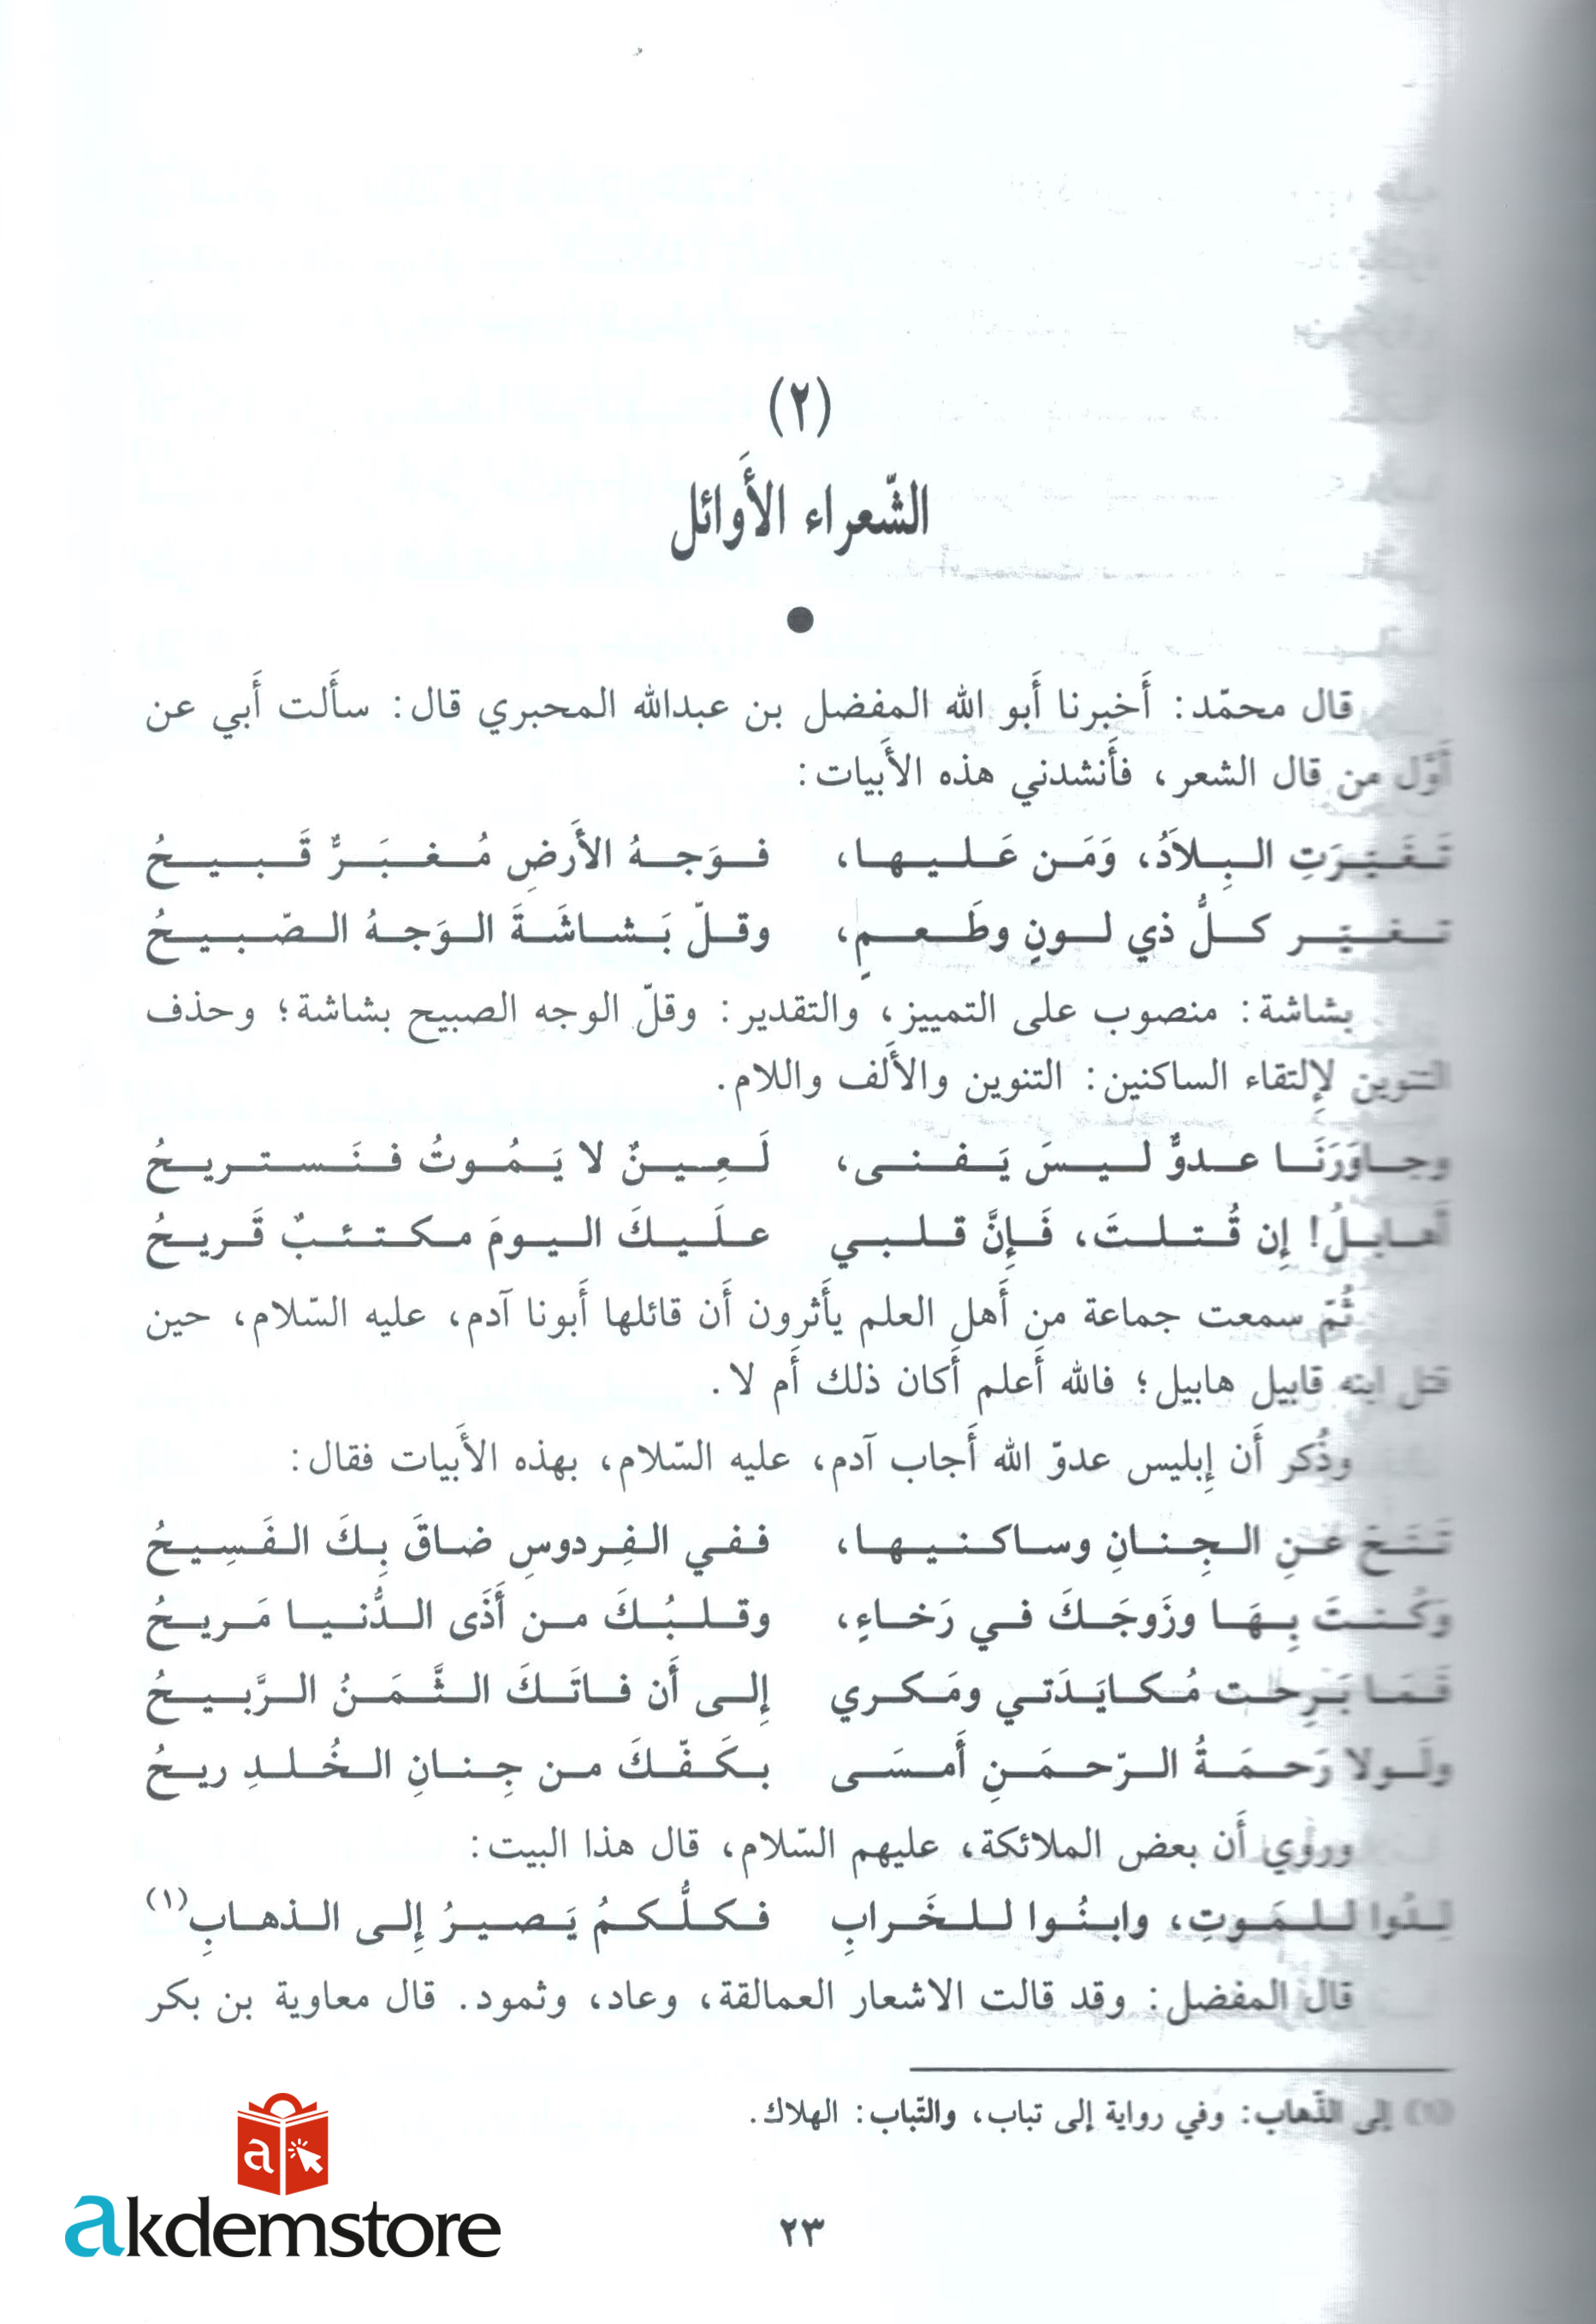 (٢)
الشّعراء الأَوائل
قال محمّد: أَخبرنا أَبو الله المفضل بن عبدالله المحبري قال: سأَلت أَبي عن
أَوّل من قال الشعر، فأَنشدني هذه الأَبيات:
تَغَيّرَتِ البِلاَدُ، وَمَن عَليها، فوَجهُ الأَرضِ مُغبَرٌّ قَبيحُ
تغيّر كلُّ ذي لونٍ وطَعمٍ، وقلّ بَشاشَةَ الوَجهُ الصّبيحُ
بشاشة: منصوب على التمييز، والتقدير: وقلّ الوجه الصبيح بشاشة؛ وحذف
التنوين لإِلتقاء الساكنين: التنوين والأَلف واللام.
وجاوَرَنَا عدوٌّ ليسَ يَفنى، لَعِينٌ لا يَمُوتُ فنَستريحُ
أَهابلُ! إِن قُتلتَ، فَإِنَّ قلبي علَيكَ اليومَ مكتئبٌ قَريحُ
ثُمّ سمعت جماعة من أَهل العلم يأَثرون أَن قائلها أَبونا آدم، عليه السّلام، حين
قتل ابنه قابيل هابيل؛ فالله أَعلم أَكان ذلك أَم لا.
وذُكر أَن إِبليس عدوّ الله أَجاب آدم، عليه السّلام، بهذه الأَبيات فقال:
تَنَحّ عنِ الجِنانِ وساكنيها، ففي الفِردوسِ ضاقَ بِكَ الفَسِيحُ
وَكُنتَ بِهَا وزَوجَكَ في رَخاءٍ، وقلبُكَ من أَذَى الدُّنيا مَريحُ
فَمَا بَرِحت مُكايَدَتي ومَكري إِلى أَن فاتَكَ الثَّمَنُ الرَّبيحُ
ولَولا رَحمَةُ الرّحمَنِ أَمسَى بكَفّكَ من جِنانِ الخُلدِ ريحُ
وروي أَن بعض الملائكة، عليهم السّلام، قال هذا البيت:
لِدُوا للمَوتِ، وابنُوا للخَرابِ فكلُّكمُ يَصيرُ إِلى الذهابِ(١)
قال المفضل: وقد قالت الاشعار العمالقة، وعاد، وثمود. قال معاوية بن بكر
(١) إلى الذّهاب: وفي رواية إلى تباب، والتّباب: الهلاك.
٢٣
a
akdemstore